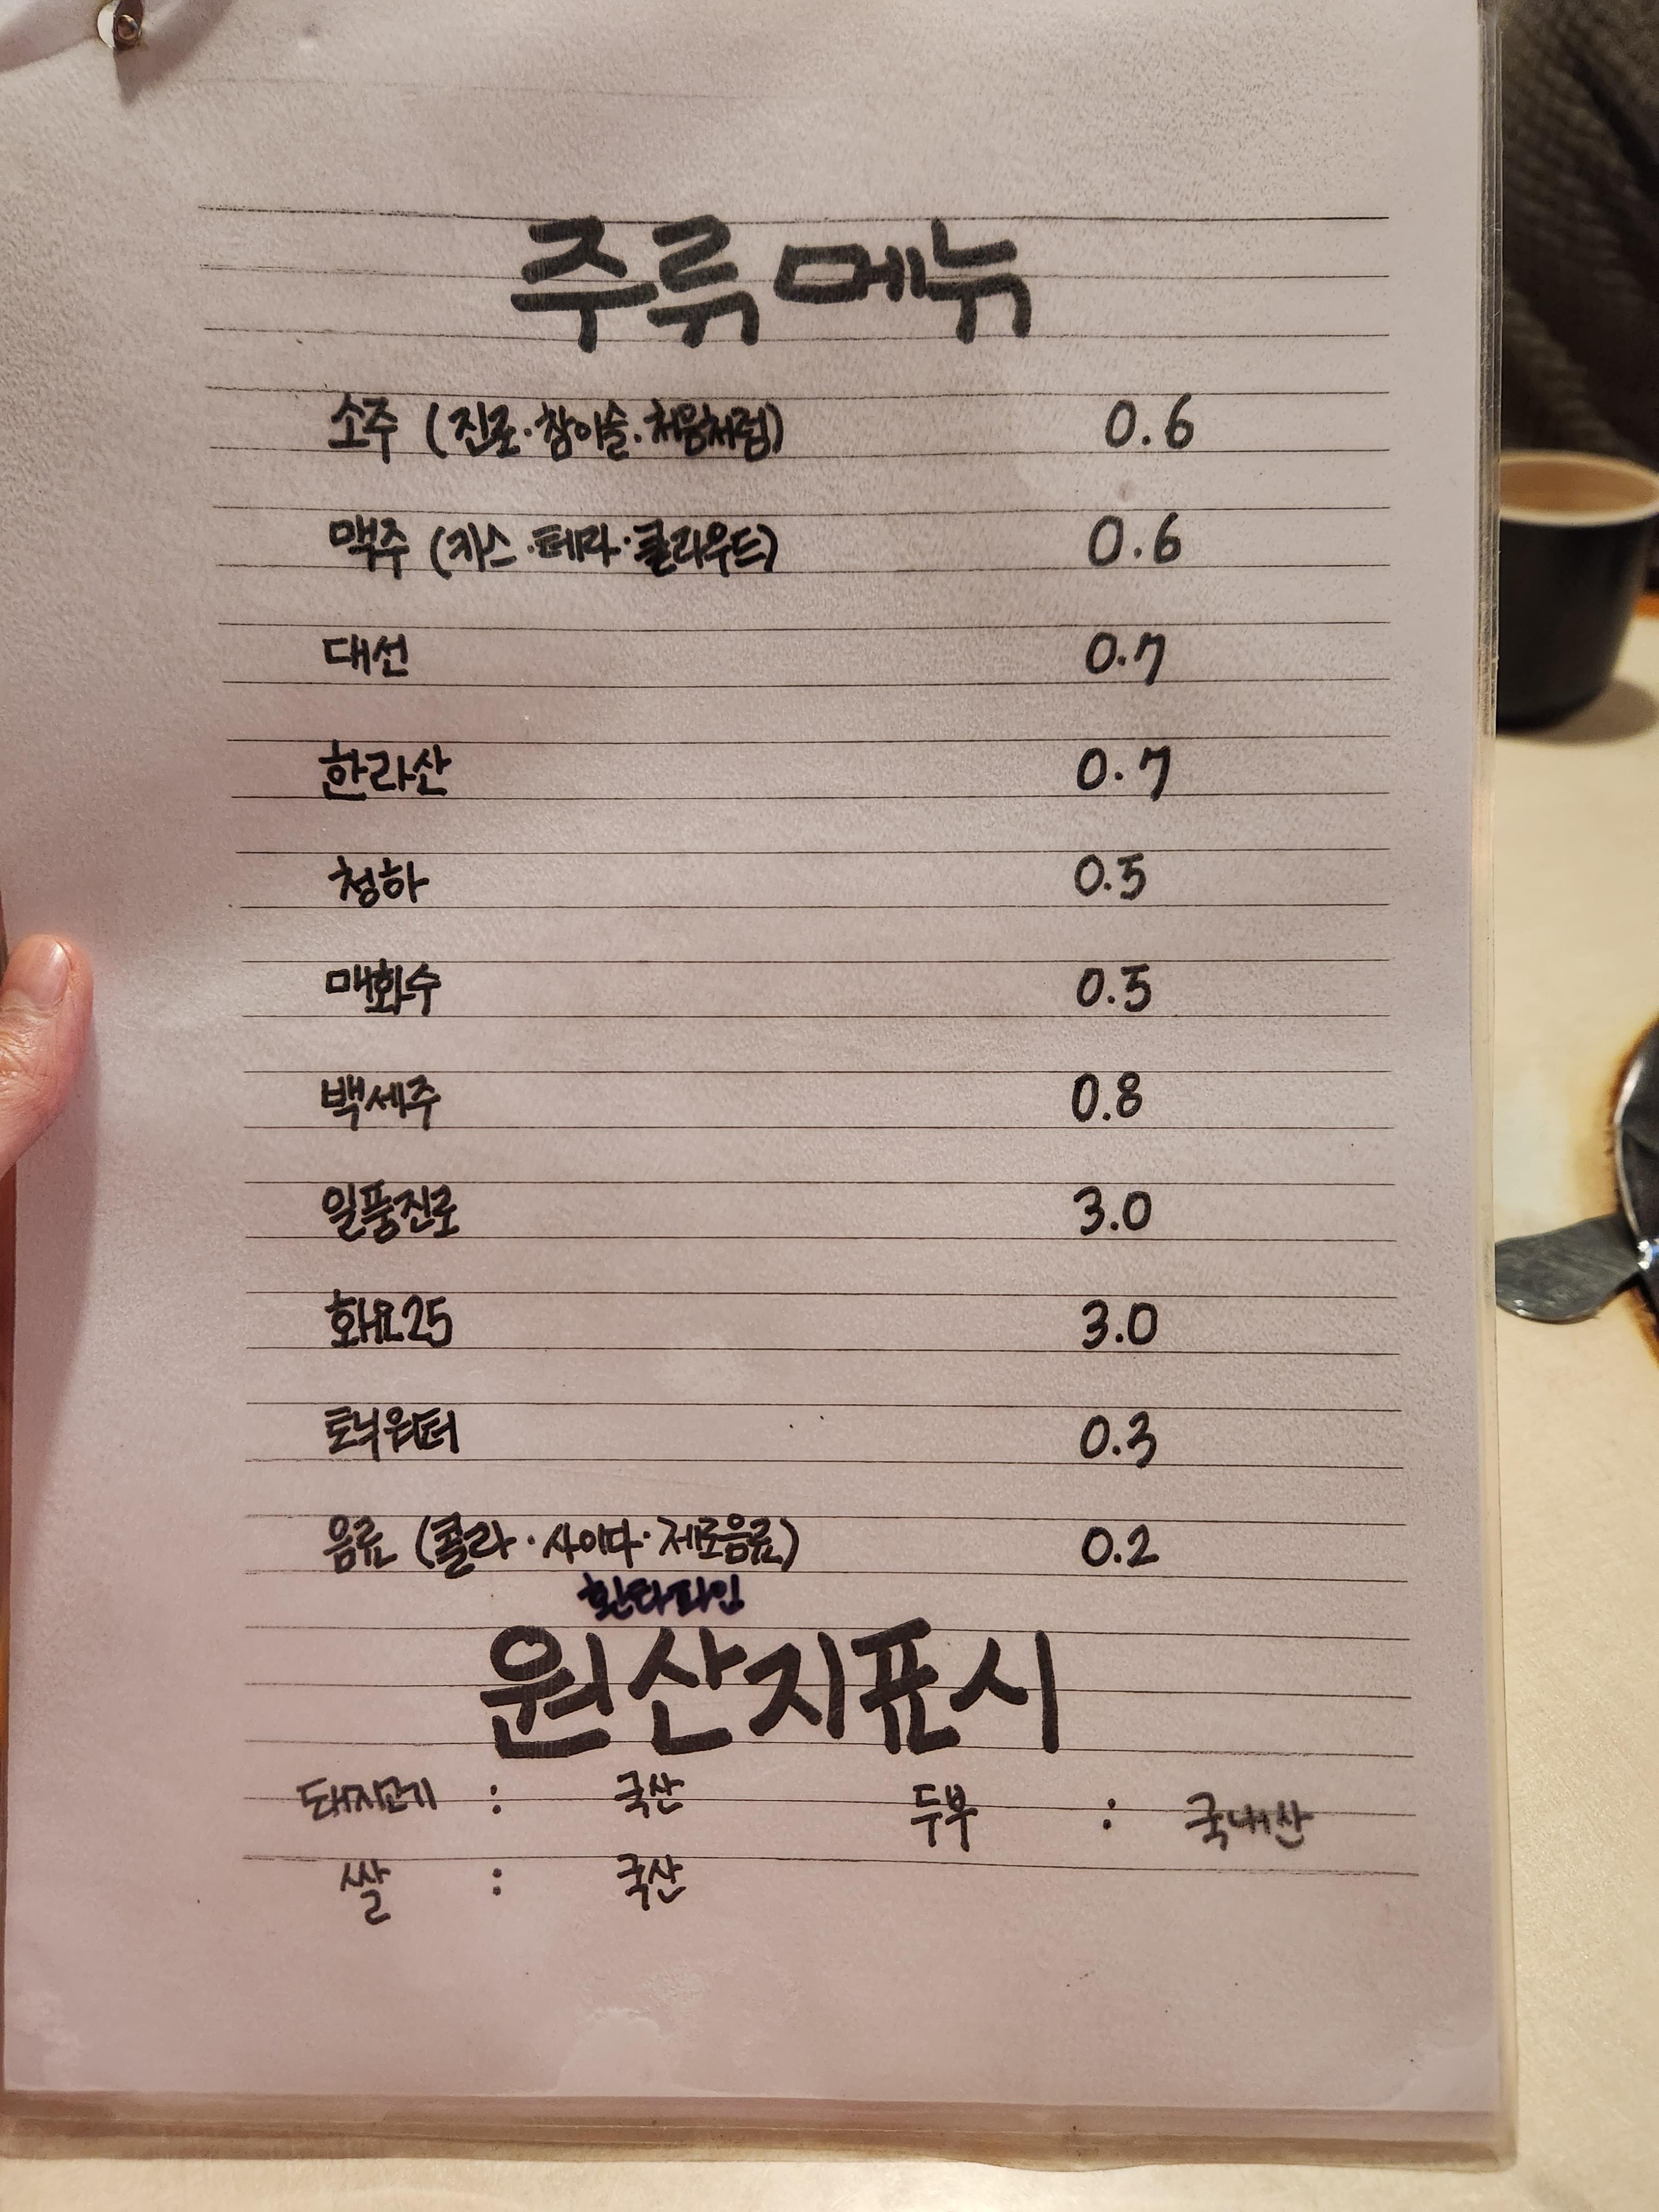 주류메뉴
소주 (진로·참이슬·처음처럼) 0.6
맥주 (카스·테라·클라우드) 0.6
대선 0.7
한라산 0.7
청하 0.5
매화수 0.5
백세주 0.8
일품진로 3.0
화요25 3.0
토닉워터 0.3
음료 (콜라·사이다·제로음료) 0.2
환타파인
원산지표시
돼지고기 : 국산 두부 : 국내산
쌀 : 국산